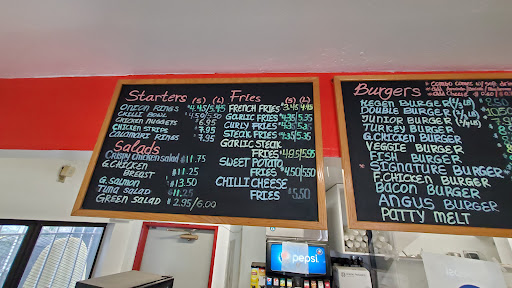 Starters (S) (L)
ONION RINGS $4.45/5.45
CHILLI BOWL $4.50/5.50
CHICKEN NUGGETS $6.95
CHICKEN STRIPS $7.95
CALAMARI RINGS $7.95
Salads
CRISPY CHICKEN SALAD $11.75
G.CHICKEN
BREAST $11.25
G.SALMON $13.50
TUNA SALAD $11.25
GREEN SALAD $2.95/6.00
Fries (S) (L)
FRENCH FRIES $3.45/4.95
GARLIC FRIES $4.35/5.35
CURLY FRIES $4.35/5.35
STEAK FRIES $4.35/5.35
GARLIC STEAK
FRIES $4.95/5.95
SWEET POTATO
FRIES $4.50/5.50
CHILLI CHEESE
FRIES $5.50
Burgers
* COMBO COMES W/ SOFT DRINK
* Add
* Add Cheese
REGEN BURGER (1/3 LB)
DOUBLE BURGER
JUNIOR BURGER
TURKEY BURGER
G.CHICKEN BURGER
VEGGIE BURGER
FISH BURGER
* SIGNATURE BURGER
F.CHICKEN BURGER
BACON BURGER
ANGUS BURGER
PATTY MELT
pepsi